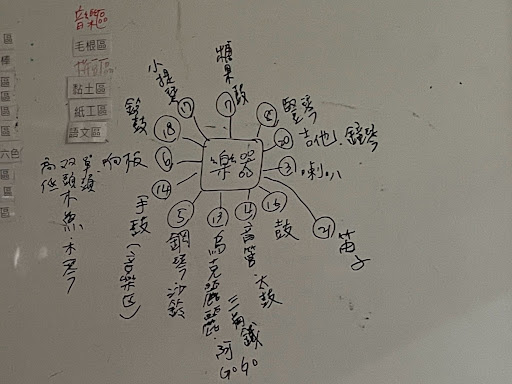 音樂區
毛根區
黏土區
紙工區
語文區
六色
區
區
區
區
區
樂器
糖果鼓
7
小提琴
17
鈴鼓
18
响板
6
單頭
双頭木魚.木琴
高低
14
手鼓(音樂區)
5
鋼琴.沙鈴
13
烏克麗麗.阿GoGo
三角鐵
14
音管
大鼓
16
鼓
21
笛子
3
喇叭
20
吉他.鐘琴
8
豎琴